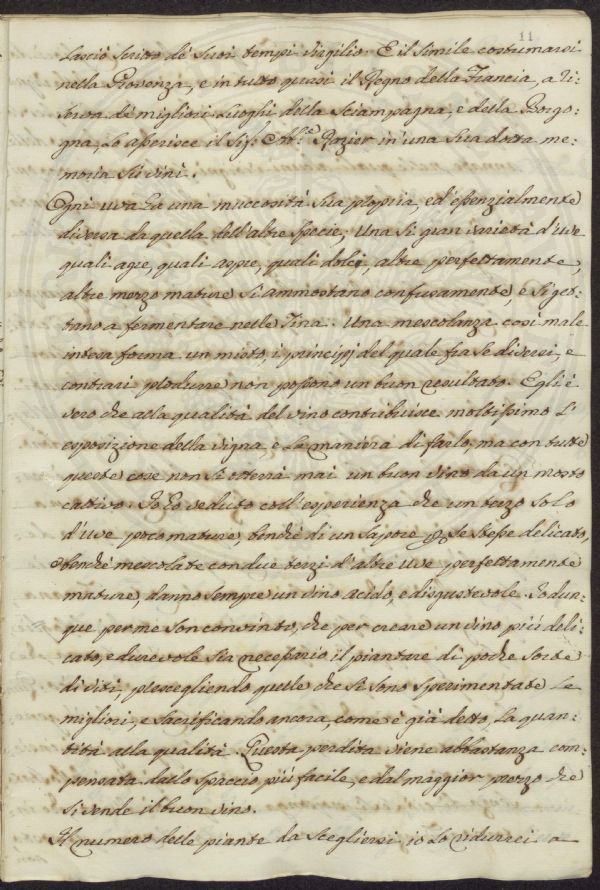 11
lasciò scritto de' suoi tempi Virgilio. E il simile costumarsi
nella Provenza, e in tutto quasi il Regno della Francia, a ri=
serva de' migliori luoghi della Sciampagna, e della Borgo=
gna, lo asserisce il Sig.r Ab.e Rozier in una sua dotta me=
moria su i vini.
Ogni uva ha una muccosità sua propria, ed essenzialmente
diversa da quella dell'altre specie; Una sì gran varietà d'uve
quali agre, quali aspre, quali dolci, altre perfettamente,
altre mezzo mature si ammostano confusamente, e si get=
tano a fermentare nelle Tina. Una mescolanza così male
intesa forma un misto, i principj del quale fra se diversi, e
contrari produrre non possono un buon resultato. Egli è
vero che alla qualità del vino contribuisce moltissimo l'
esposizione della vigna, e la maniera di farlo, ma con tutte
queste cose non si otterrà mai un buon vino da un mosto
cattivo. Io ho veduto coll'esperienza che un terzo solo
d'uve poco mature, benchè di un sapore per se stesse delicato,
benchè mescolate con due terzi d'altre uve perfettamente
mature, danno sempre un vino acido, e disgustevole. Io dun=
que per me son convinto, che per creare un vino più deli=
cato, e durevole sia necessario il piantare di poche sorte
di viti, prescegliendo quelle che si sono sperimentate le
migliori, e sacrificando ancora, come è già detto, la quan=
tità alla qualità. Questa perdita viene abbastanza com=
pensata dallo spaccio più facile, e dal maggior prezzo che
si vende il buon vino.
Il numero delle piante da scegliersi io lo ridurrei a